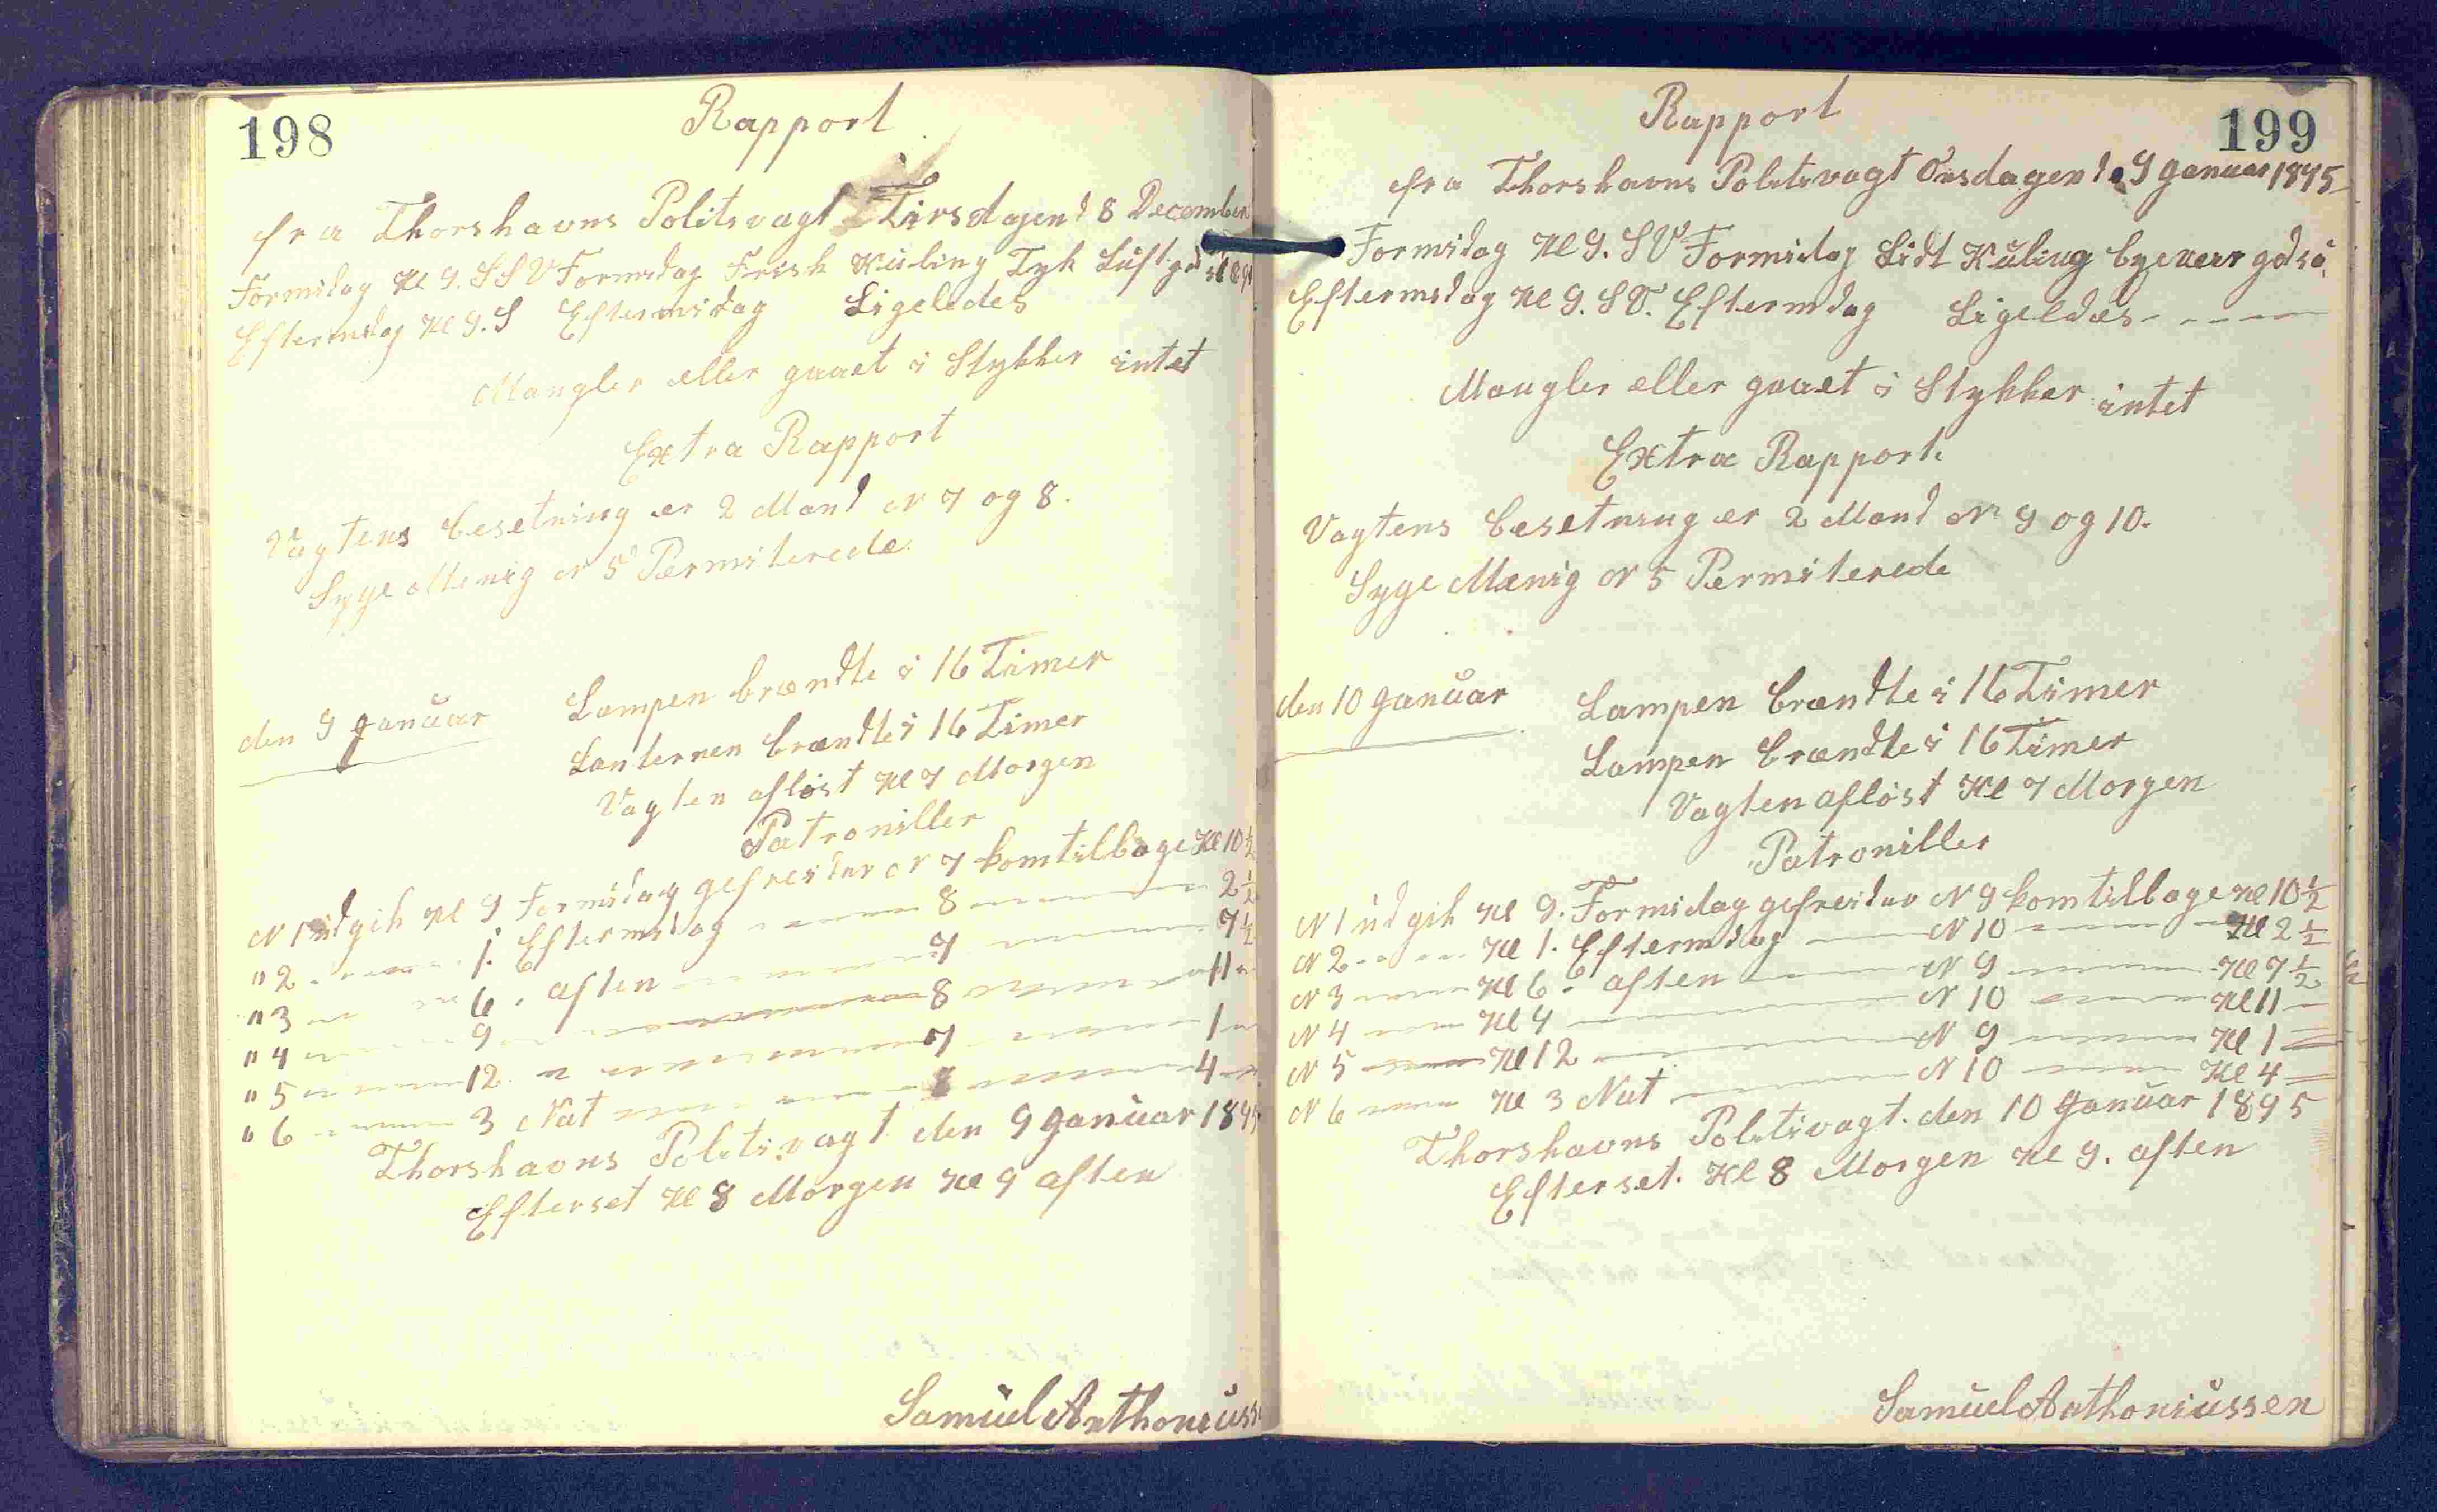 198
Rapport
fra Thorshavns Politivagt Tirsdagen d 8 December
Formidag Kl 9. SSV Formdag Frisk Kuling Tyk Luft
Eftermdag Kl 9. S Eftermidag Ligeledes
Mangler eller gaaet i Stykker intet
Extra Rapport
Vagtens besetning er 2 Mand N 7 og 8.
Syge Menig N 5 Permiterede.
den 9 Januar Lampen brændte i 16 Timer
Lanternen brændte i 16 Timer
Vagten afløst Kl 7 Morgen
Patroniller
N 1 udgik Kl 9 Formidag gefreidar N 7 kom tilbage Kl 10 ½
" 2 1. Eftermdag 8 2 ½
" 3 6. aften 7 7 ½
" 4 9 8 11
" 5 12 7 1
" 6 3 Nat 8 4
Thorshavns Politivagt den 9 Januar 1895
Efterset Kl 8 Morgen Kl 9 aften
Samuel Anthoniuss
Rapport
199
fra Thorshavns Politivagt Onsdagen d. 9 Januar 1895
Formidag Kl 9. SV Formidag Lidt Kuling byeveir god sö
Eftermdag Kl 9. SV. Eftermdag Ligeldes - - - -
Mangler eller gaaet i Stykker intet
Extra Rapport.
Vagtens besetning er 2 Mand N 9 og 10.
Syge Menig N 5 Permiterede
den 10 Januar Lampen brændte i 16 Timer
Lampen brændte i 16 Timer
Vagten afløst Kl 7 Morgen
Patroniller
N 1 udgik Kl 9. Formidag gefreidar N 9 kom tilbage Kl 10 ½
N 2 Kl 1. Eftermdag N 10 Kl 2 ½
N 3 Kl 6. aften N 9 Kl 7 ½
N 4 Kl 4 N 10 Kl 11
N 5 Kl 12 N 9 Kl 1
N 6 Kl 3 Nat N 10 Kl 4
Thorshavns Politivagt. den 10 Januar 1895
Efterset. Kl 8 Morgen Kl 9. aften
Samuel Anthoniussen